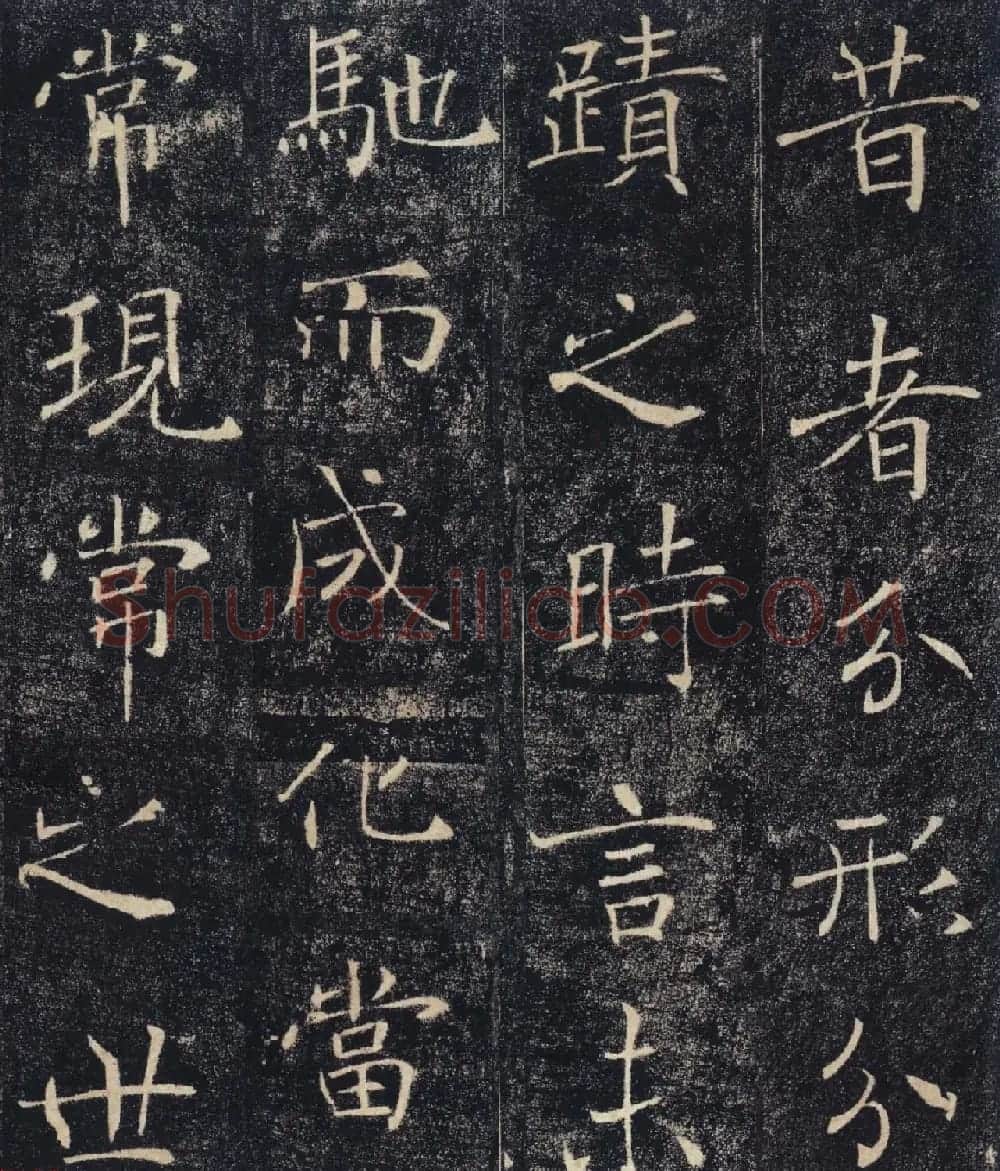 昔者分形分
蹟之時言未
馳而成化當
常現常之世
Shufaziliao.COM